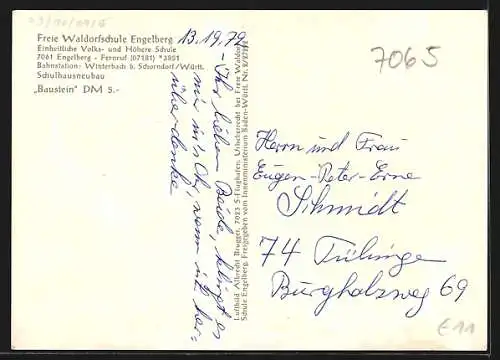 Freie Waldorfschule Engelberg
Einheitliche Volks- und Höhere Schule
7061 Engelberg - Fernruf (07181) *3801
Bahnstation: Winterbach b. Schorndorf/Württ.
Schulhausneubau
„Baustein" DM 5.-
13.19.79
- Ihr lieben Beide, klingt es
mir in's Ohr, wenn ich her-
überdenke
Luftbild Albrecht Brugger, 7023 S-Flughafen, Urheberrecht bei Freie Waldorf
Schule Engelberg, Freigegeben vom Innenministerium Baden-Württ. Nr.
7065
Herrn und Frau
Eugen-Peter-Erne
Schmidt
74 Tübingen
Burgholzweg 69
€11